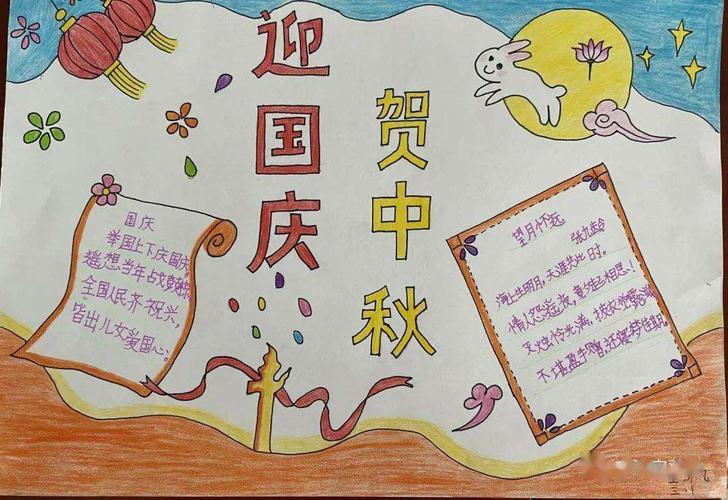 迎国庆
贺中秋
国庆
举国上下庆国庆
遥想当年战
全国人民齐祝兴,
皆出儿女爱国心。
望月怀远
张九龄
海上生明月,天涯共此时.
情人怨遥夜,竟夕起相思!
灭烛怜光满,披衣觉露滋
不堪盈手赠,还寝梦佳期.